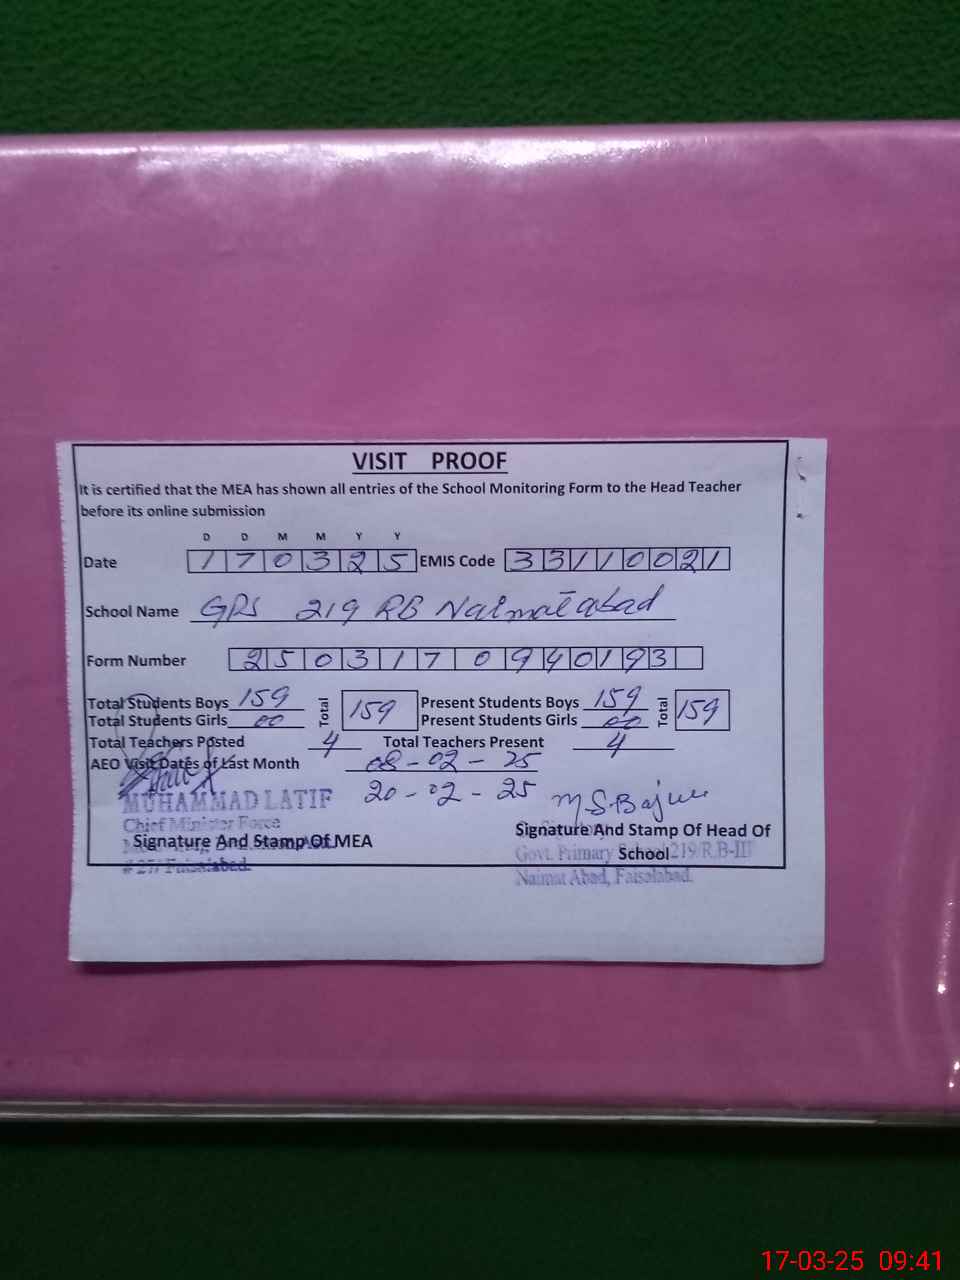 VISIT PROOF
It is certified that the MEA has shown all entries of the School Monitoring Form to the Head Teacher
before its online submission
D D M M Y Y
Date 1 7 0 3 2 5 EMIS Code 3 3 1 1 0 0 2 1
School Name GPS 219 RB Naimatabad
Form Number 2 5 0 3 1 7 0 9 4 0 1 9 3
Total Students Boys 159 Total 159 Present Students Boys 159 Total 159
Total Students Girls 00 Present Students Girls 00
Total Teachers Posted 4 Total Teachers Present 4
AEO Visit Dates of Last Month 08-02-25
20-02-25
MUHAMMAD LATIF
Chief Minister Force
Signature And Stamp Of MEA
# 27 Faisalabad.
M S Bajwa
Signature And Stamp Of Head Of
School
Govt. Primary School 219/R.B-III
Naimat Abad, Faisalabad.
17-03-25 09:41